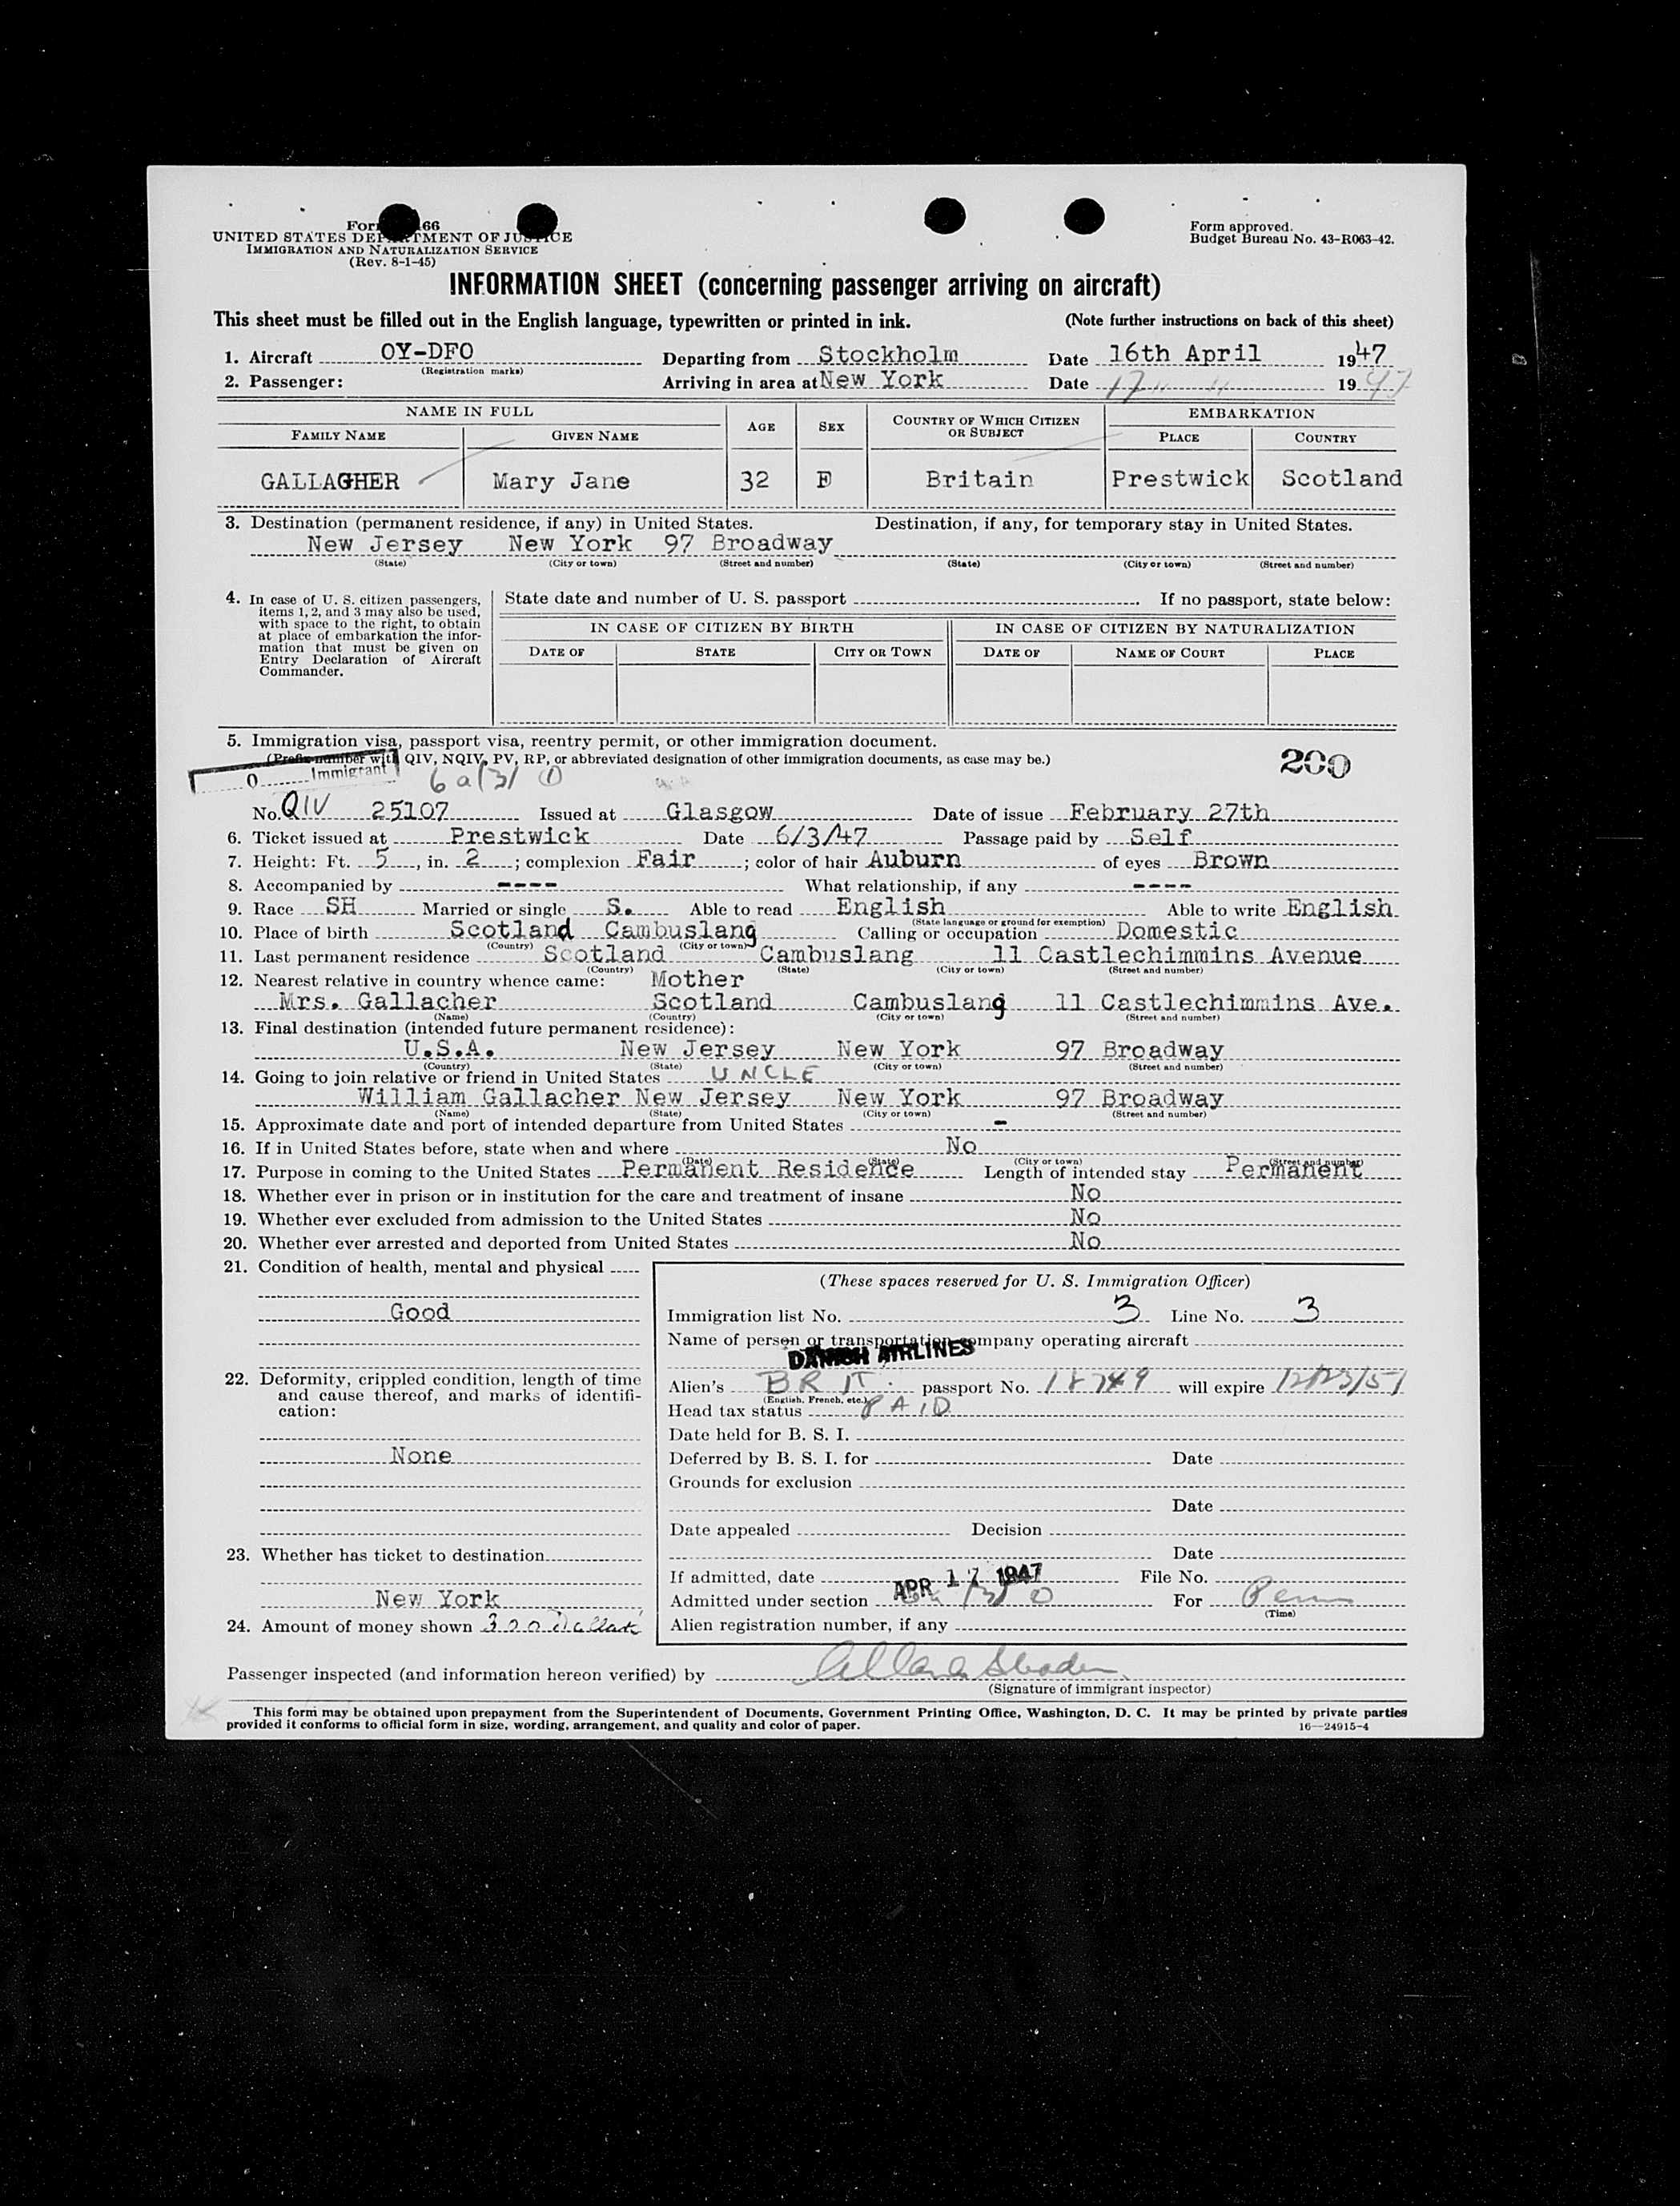 Form 66
UNITED STATES DEPARTMENT OF JUSTICE
IMMIGRATION AND NATURALIZATION SERVICE
(Rev. 8-1-45)
Form approved.
Budget Bureau No. 43-R063-42.
INFORMATION SHEET (concerning passenger arriving on aircraft)
This sheet must be filled out in the English language, typewritten or printed in ink. (Note further instructions on back of this sheet)
1. Aircraft OY-DFO Departing from Stockholm Date 16th April 1947
(Registration marks)
2. Passenger: Arriving in area at New York Date 17 " " 1947
NAME IN FULL AGE SEX COUNTRY OF WHICH CITIZEN OR SUBJECT EMBARKATION
FAMILY NAME GIVEN NAME PLACE COUNTRY
GALLAGHER Mary Jane 32 F Britain Prestwick Scotland
3. Destination (permanent residence, if any) in United States. Destination, if any, for temporary stay in United States.
New Jersey New York 97 Broadway
(State) (City or town) (Street and number) (State) (City or town) (Street and number)
4. In case of U. S. citizen passengers, items 1, 2, and 3 may also be used, with space to the right, to obtain at place of embarkation the information that must be given on Entry Declaration of Aircraft Commander.
State date and number of U. S. passport If no passport, state below:
IN CASE OF CITIZEN BY BIRTH IN CASE OF CITIZEN BY NATURALIZATION
DATE OF STATE CITY OR TOWN DATE OF NAME OF COURT PLACE
5. Immigration visa, passport visa, reentry permit, or other immigration document.
(Prefix number with QIV, NQIV, PV, RP, or abbreviated designation of other immigration documents, as case may be.)
200
0 Immigrant 6a(3) O
No. QIV 25107 Issued at Glasgow Date of issue February 27th
6. Ticket issued at Prestwick Date 6/3/47 Passage paid by Self
7. Height: Ft. 5, in. 2; complexion Fair; color of hair Auburn of eyes Brown
8. Accompanied by ---- What relationship, if any ----
9. Race SH Married or single S. Able to read English Able to write English
(State language or ground for exemption)
10. Place of birth Scotland Cambuslang Calling or occupation Domestic
(Country) (City or town)
11. Last permanent residence Scotland Cambuslang 11 Castlechimmins Avenue
(Country) (State) (City or town) (Street and number)
12. Nearest relative in country whence came: Mother
Mrs. Gallacher Scotland Cambuslang 11 Castlechimmins Ave.
(Name) (Country) (City or town) (Street and number)
13. Final destination (intended future permanent residence):
U.S.A. New Jersey New York 97 Broadway
(Country) (State) (City or town) (Street and number)
14. Going to join relative or friend in United States UNCLE
William Gallacher New Jersey New York 97 Broadway
(Name) (State) (City or town) (Street and number)
15. Approximate date and port of intended departure from United States -
16. If in United States before, state when and where No
(Date) (State) (City or town) (Street and number)
17. Purpose in coming to the United States Permanent Residence Length of intended stay Permanent
18. Whether ever in prison or in institution for the care and treatment of insane No
19. Whether ever excluded from admission to the United States No
20. Whether ever arrested and deported from United States No
21. Condition of health, mental and physical
Good
22. Deformity, crippled condition, length of time and cause thereof, and marks of identification:
None
23. Whether has ticket to destination
New York
24. Amount of money shown 300 Dollars
(These spaces reserved for U. S. Immigration Officer)
Immigration list No. 3 Line No. 3
Name of person or transportation company operating aircraft
DANISH AIRLINES
Alien's BRIT. passport No. 18749 will expire 12/23/51
(English, French, etc.)
Head tax status PAID
Date held for B. S. I.
Deferred by B. S. I. for Date
Grounds for exclusion
Date
Date appealed Decision
Date
If admitted, date APR 17 1947 File No.
Admitted under section 6a (3) O For Perm
(Time)
Alien registration number, if any
Passenger inspected (and information hereon verified) by
(Signature of immigrant inspector)
This form may be obtained upon prepayment from the Superintendent of Documents, Government Printing Office, Washington, D. C. It may be printed by private parties
provided it conforms to official form in size, wording, arrangement, and quality and color of paper. 16—24915-4